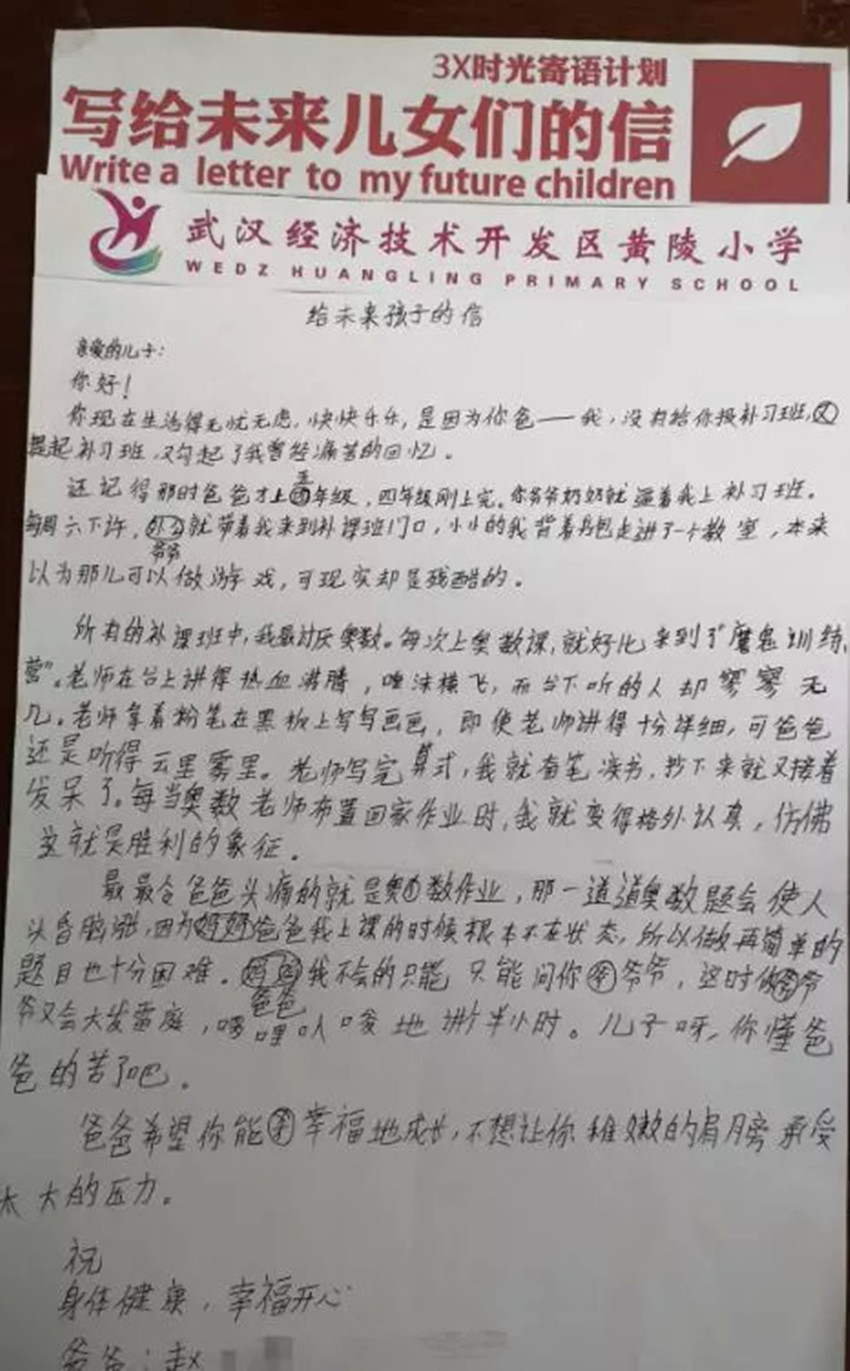 3X时光寄语计划
写给未来儿女们的信
Write a letter to my future children
武汉经济技术开发区黄陵小学
WEDZ HUANGLING PRIMARY SCHOOL
给未来孩子的信
亲爱的儿子：
你好！
你现在生活得无忧无虑，快快乐乐，是因为你爸——我，没有给你报补习班，又
提起补习班，又勾起了我曾经痛苦的回忆。
还记得那时爸爸才上五年级，四年级刚上完。你爷爷奶奶就逼着我上补习班。
每周六下许，爷爷就带着我来到补课班门口，小小的我背着书包走进了一个教室，本来
以为那儿可以做游戏，可现实却是残酷的。
所有的补课班中，我最讨厌奥数。每次上奥数课，就好比来到了“魔鬼训练
营”。老师在台上讲得热血沸腾，唾沫横飞，而台下听的人却寥寥无
几。老师拿着粉笔在黑板上写写画画，即使老师讲得十分详细，可爸爸
还是听得云里雾里。老师写完算式，我就奋笔疾书，抄下来就又接着
发呆了。每当奥数老师布置回家作业时，我就变得格外认真，仿佛
这就是胜利的象征。
最最令爸爸头痛的就是奥数作业，那一道道奥数题会使人
头昏脑涨，因为奶奶爸爸我上课的时候根本不在状态，所以做再简单的
题目也十分困难。妈妈爸爸我不会的只能只能问你爷爷，这时候爷
爷又会大发雷庭，啰哩叭唆地讲个半小时。儿子呀，你懂爸
爸的苦了吧。
爸爸希望你能幸福地成长，不想让你稚嫩的肩膀承受
太大的压力。
祝
身体健康，幸福开心
爸爸：赵